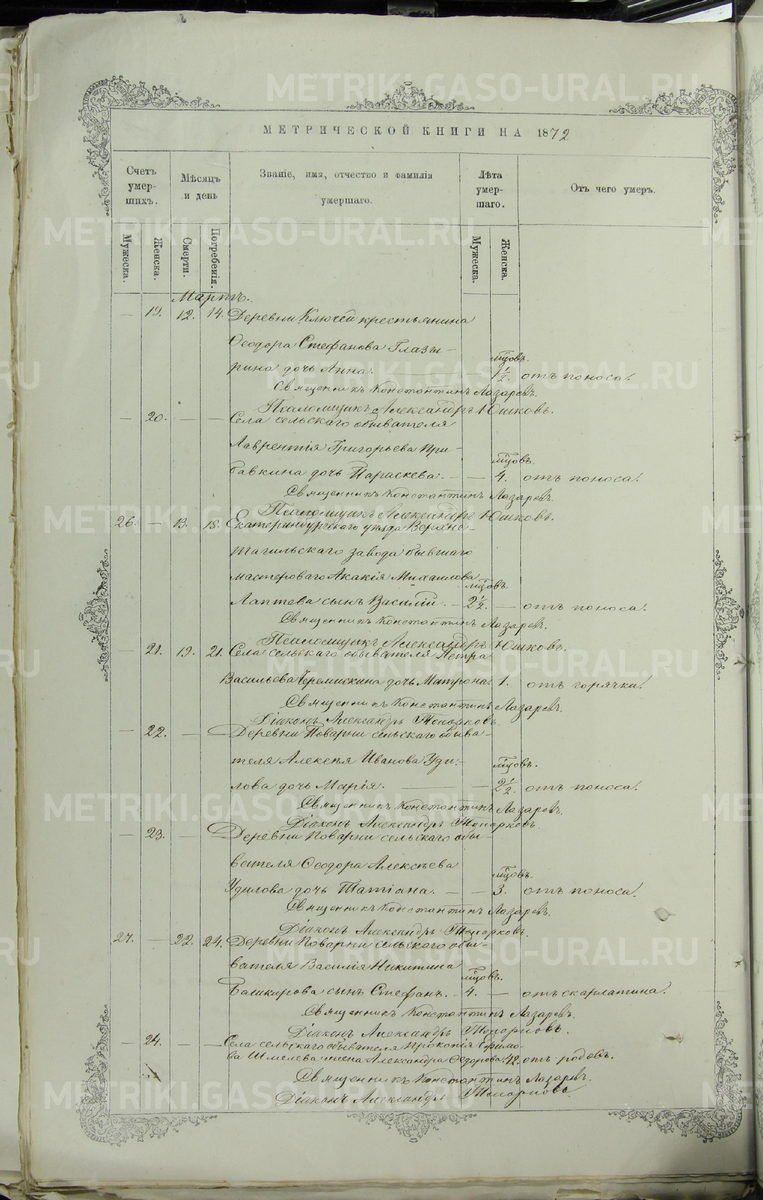 METRIKI.GASO-URAL.RU
МЕТРИЧЕСКОЙ КНИГИ НА 1872
Счетъ умер-шихъ. Мѣсяцъ и день Званіе, имя, отчество и фамилія умершаго. Лѣта умер-шаго. Отъ чего умеръ.
Мужеска. Женска. Смерти. Погребенія. Мужеска. Женска.
Мартъ.
— 19. 12. 14. Деревни Ключей крестьянина
Ѳеодора Стефанова Глазы- мцовъ.
рина дочь Анна. 1 1/2. отъ поноса.
Священникъ Константинъ Лазаревъ.
Псаломщикъ Александръ Юшковъ.
— 20. — — Села сельскаго обывателя
Лаврентія Григорьева При- мцовъ.
бавкина дочь Параскева. — — 4. отъ поноса.
Священникъ Константинъ Лазаревъ.
Псаломщикъ Александръ Юшковъ.
26. — 13. 15. Екатеринбургскаго уѣзда Верхне-
тагильскаго завода бывшаго
мастероваго Акакія Михаилова мцовъ.
Лаптева сынъ Василій. — 2 1/2. — отъ поноса.
Священникъ Константинъ Лазаревъ.
Псаломщикъ Александръ Юшковъ.
— 21. 19. 21. Села сельскаго обывателя Петра
Васильева Черемискина дочь Матрона. 1. отъ горячки.
Священникъ Константинъ Лазаревъ.
Діаконъ Александръ Топорковъ.
— 22. — — Деревни Поварни сельскаго обыва-
теля Алексѣя Иванова Уди- мцовъ.
лова дочь Марія. 2 1/2. отъ поноса.
Священникъ Константинъ Лазаревъ.
Діаконъ Александръ Топорковъ.
— 23. — — Деревни Поварни сельскаго обы-
вателя Ѳеодора Алексѣева мцовъ.
Удилова дочь Татіана. — — 3. отъ поноса.
Священникъ Константинъ Лазаревъ.
Діаконъ Александръ Топорковъ.
27. — 22. 24. Деревни Поварни сельскаго обы-
вателя Василія Никитина мцовъ.
Башкирова сынъ Стефанъ. — 4. — отъ скарлатина.
Священникъ Константинъ Лазаревъ.
Діаконъ Александръ Топорковъ.
— 24. — — Села сельскаго обывателя Прокопія Ефимо-
ва Шмелева жена Александра Ѳедорова 42. отъ родовъ.
Священникъ Константинъ Лазаревъ.
Діаконъ Александръ Топорковъ